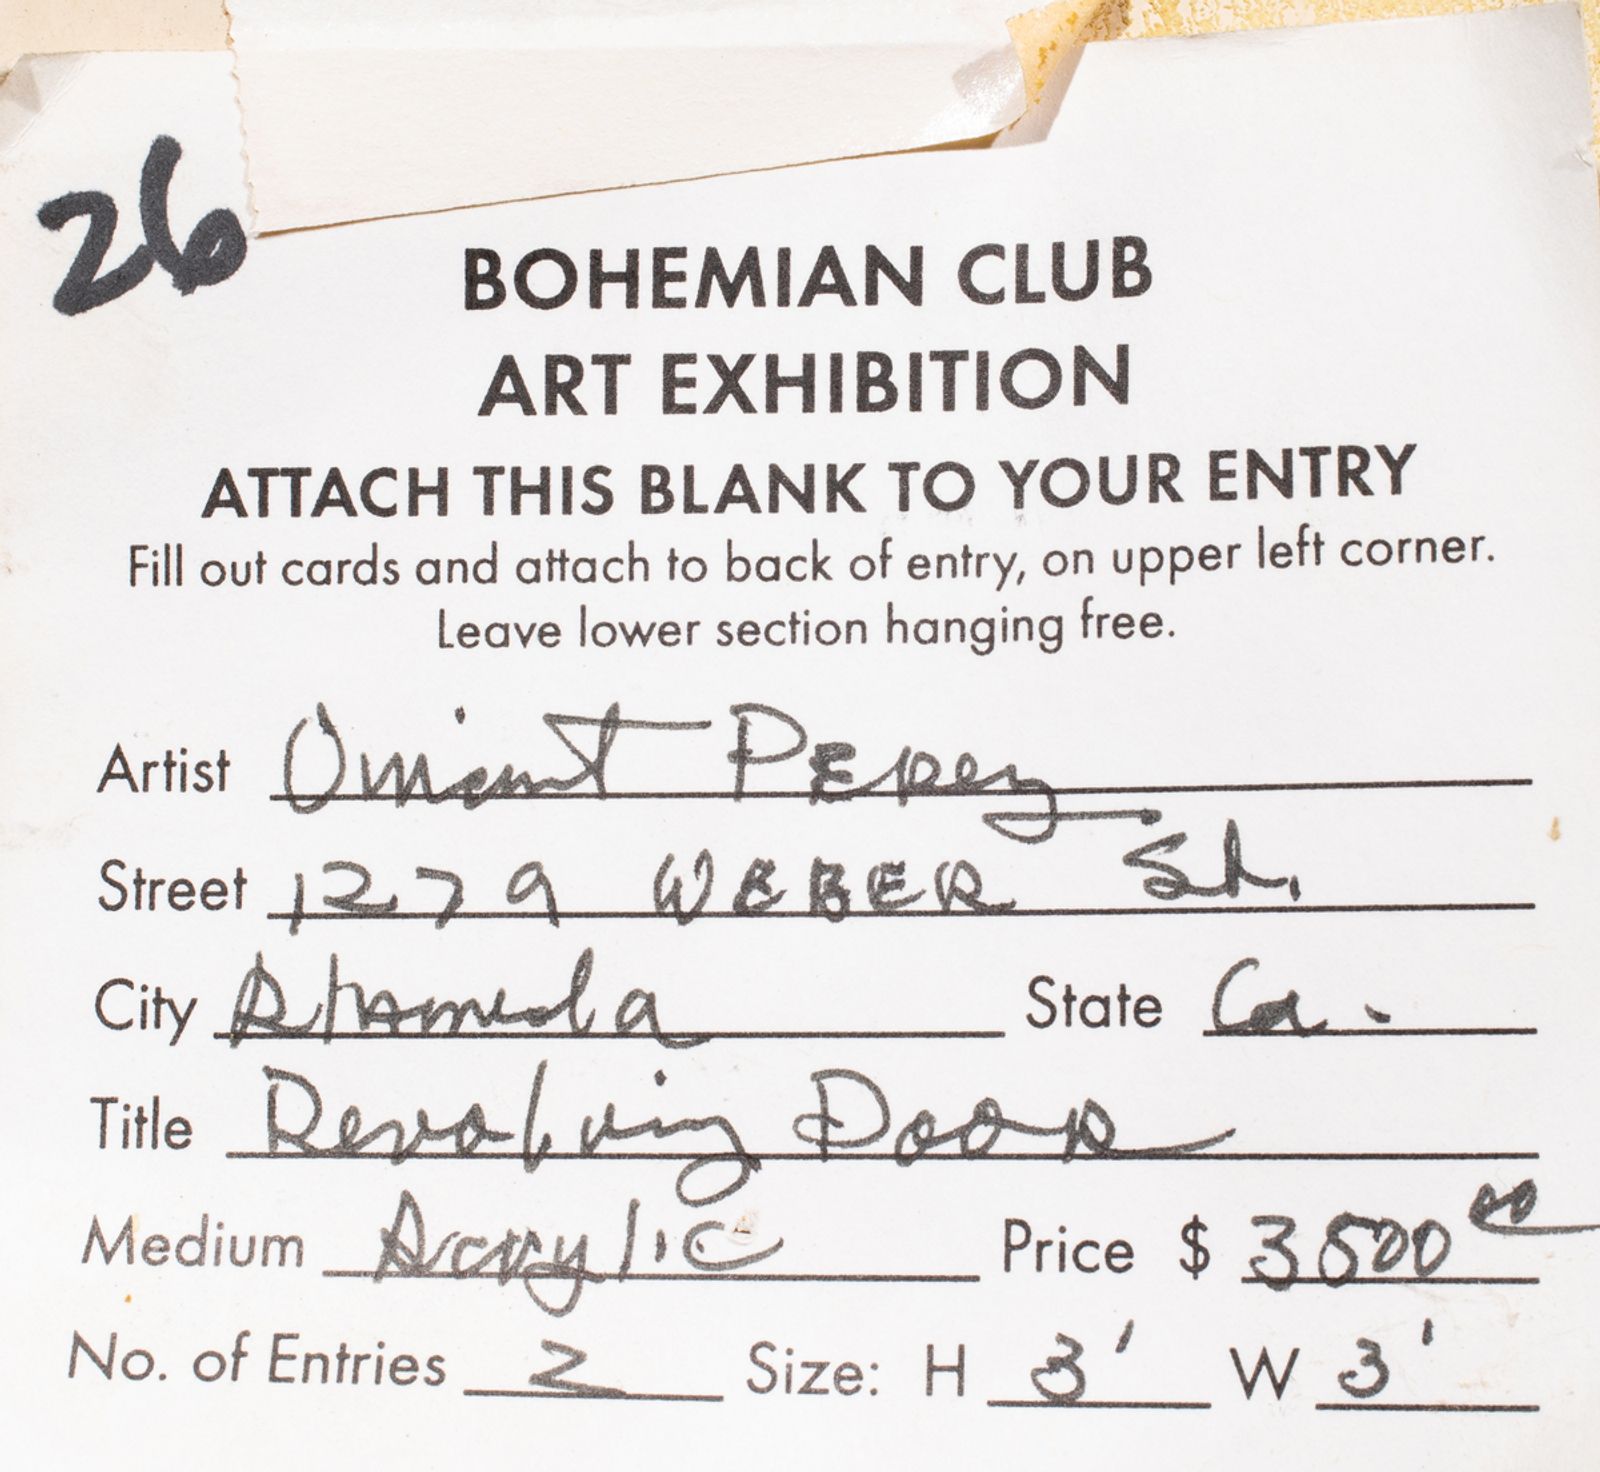 26
BOHEMIAN CLUB
ART EXHIBITION
ATTACH THIS BLANK TO YOUR ENTRY
Fill out cards and attach to back of entry, on upper left corner.
Leave lower section hanging free.
Artist Vincent Perez
Street 1279 WEBER St.
City Alameda State Ca.
Title Revolving Door
Medium Acrylic Price $ 3500 00
No. of Entries 2 Size: H 3' W 3'